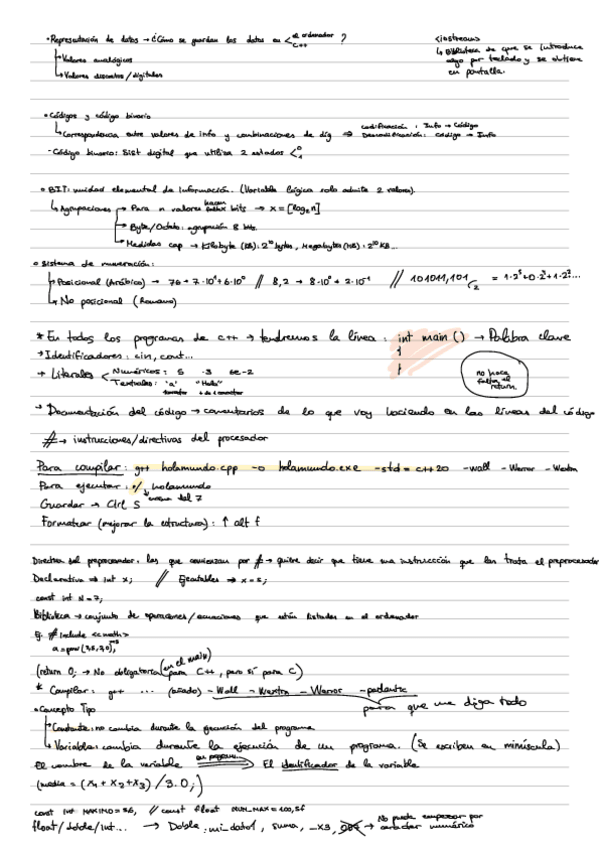 • Representación de datos → ¿Cómo se guardan los datos en < el ordenador C++ ?
<iostream>
↳ Biblioteca de que se introduce algo por teclado y se obtiene en pantalla.
↳ Valores analógicos
↳ Valores discretos / digitales
• Códigos y código binario
↳ Correspondencia entre valores de info y combinaciones de díg ⇒ Codificación : Info → Código
Decodificación: Código → Info
- Código binario: Sist digital que utiliza 2 estados < 0 1
• BIT: unidad elemental de Información. (Variable lógica solo admite 2 valores).
↳ Agrupaciones → Para n valores hacen falta x bits → x = [log₂ n]
→ Byte/Octeto: agrupación 8 bits.
→ Medidas cap → Kilobyte (KB): 2¹⁰ bytes, Megabytes (MB): 2¹⁰ KB...
• Sistema de numeración:
↳ Posicional (Arábico) → 76 → 7·10¹+6·10⁰ // 8,2 → 8·10⁰ + 2·10⁻¹ // 101011,101₍₂ = 1·2⁵+0·2⁴+1·2³...
↳ No posicional (Romano)
* En todos los programas de c++ → tendremos la línea : int main () → Palabra clave
{
}
no hace falta el return
→ Identificadores: cin, cout...
→ Literales < Numéricos: 5 .3 6e-2
Textuales: 'a' "Hello"
→ Documentación del código → comentarios de lo que voy haciendo en las líneas del código
# → instrucciones/directivas del procesador
Para compilar : g++ holamundo.cpp -o holamundo.exe -std = c++20 -wall -Werror -Wextra
Para ejecutar : ./ holamundo
↳ encima del 7
Guardar → Ctrl S
Formatear (mejorar la estructura) : ↑ alt f
Directiva del preprocesador: las que comienzan por # → quiere decir que tiene una instrucción que las trata el preprocesador
Declarativa ⇒ int x; // Ejecutables → x = 5;
const int N = 7;
Biblioteca → conjunto de operaciones/ecuaciones que están listadas en el ordenador
Ej. # include <cmath>
(return 0; → No obligatoria (en el main) para C++, pero sí para C)
* Compilar: g++ ... (añado) - Wall - Wextra - Werror - pedantic
para que me diga todo
• Concepto Tipo
↳ Constante: no cambia durante la ejecución del programa
↳ Variable: cambia durante la ejecución de un programa. (Se escriben en minúscula)
El nombre de la variable ⇒ El identificador de la variable
(media = (x₁ + x₂ + x₃) / 3.0;)
const int MAXIMO = 56, // const float NUM_MAX = 100,5f
float/double/int... → Doble: mi_dato1, suma, _x3, → No puede empezar por carácter numérico